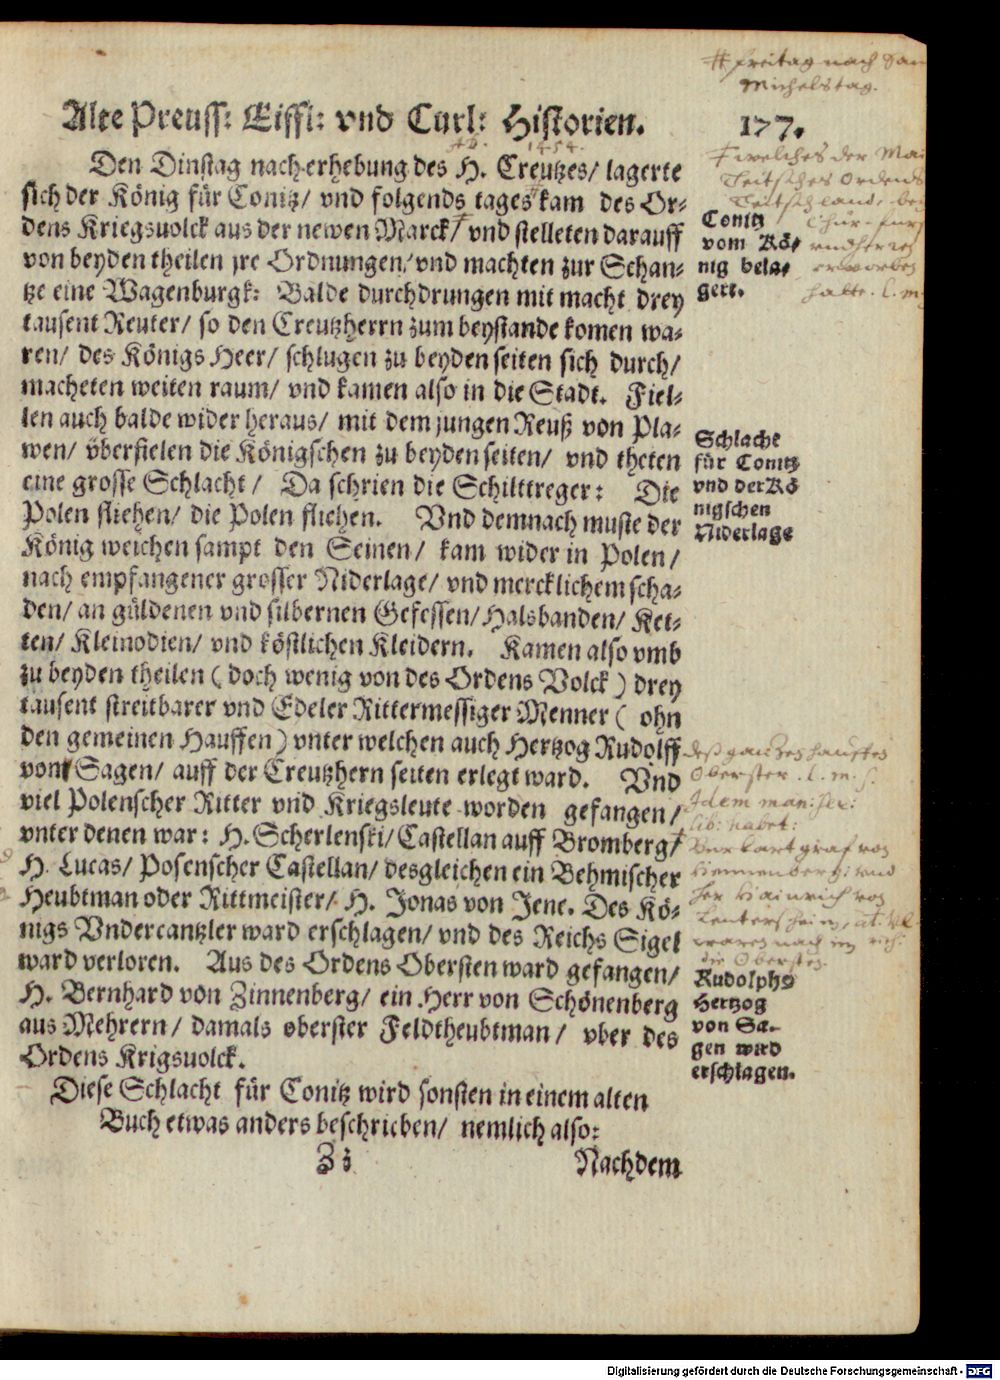 # freitag nach San
Michelstag.
Alte Preuss: Eiffl: vnd Curl: Historien. 177.
AD. 1454.
Den Dinstag nach erhebung des H. Creutzes/ lagerte
sich der König für Conitz/ vnd folgends tages # kam des Or⸗
dens Kriegsuolck aus der newen Marck/ ǂ vnd stelleten darauff
von beyden theilen jre Ordnungen/ vnd machten zur Schan⸗
tze eine Wagenburgk: Balde durchdrungen mit macht drey
tausent Reuter/ so den Creutzherrn zum beystande komen wa⸗
ren/ des Königs Heer/ schlugen zu beyden seiten sich durch/
macheten weiten raum/ vnd kamen also in die Stadt. Fiel⸗
len auch balde wider heraus/ mit dem jungen Reuß von Pla⸗
wen/ vberfielen die Königschen zu beyden seiten/ vnd theten
eine grosse Schlacht/ Da schrien die Schilttreger: Die
Polen fliehen/ die Polen fliehen. Vnd demnach muste der
König weichen sampt den Seinen/ kam wider in Polen/
nach empfangener grosser Niderlage/ vnd mercklichem scha⸗
den/ an güldenen vnd silbernen Gefessen/ Halsbanden/ Ket⸗
ten/ Kleinodien/ vnd köstlichen Kleidern. Kamen also vmb
zu beyden theilen (doch wenig von des Ordens Volck) drey
tausent streitbarer vnd Edeler Rittermessiger Menner (ohn
den gemeinen Hauffen) vnter welchen auch Hertzog Rudolff
von Sagen/ auff der Creutzhern seiten erlegt ward. Vnd
viel Polenscher Ritter vnd Kriegsleute worden gefangen/
vnter denen war: H. Scherlenski/ Castellan auff Bromberg/
H. Lucas/ Posenscher Castellan/ desgleichen ein Behmischer
Heubtman oder Rittmeister/ H. Jonas von Jene. Des Kö⸗
nigs Vndercantzler ward erschlagen/ vnd des Reichs Sigel
ward verloren. Aus des Ordens Obersten ward gefangen/
H. Bernhard von Zinnenberg/ ein Herr von Schönenberg
aus Mehrern/ damals oberster Feldtheubtman/ vber des
Ordens Krigsuolck.
Diese Schlacht für Conitz wird sonsten in einem alten
Buch etwas anders beschrieben/ nemlich also:
Zz Nachdem
ǂ welches der Mai
Teitsches Ordends
Teitschland, bey
Chur-fürs
erworben
hatte. l. m.
Conitz
vom Kö⸗
nig bela⸗
gert.
Schlacht
für Conitz
vnd der Kö
nigschen
Niderlage
deß ganzes hauffes
Oberster. l. m. s.
Idem man: scr:
lib: habet:
Burkart graf von
Hennenberg: vnd
her Hainrich von
waren nach im
die Obersten.
Rudolphs
Hertzog
von Sa⸗
gen wird
erschlagen.
Digitalisierung gefördert durch die Deutsche Forschungsgemeinschaft - DFG